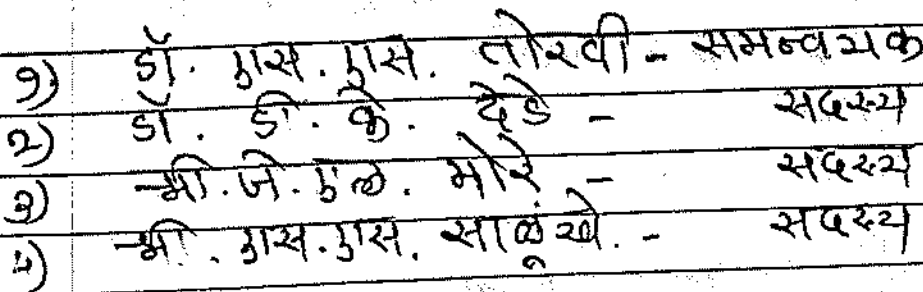 १) डॉ. एस. एस. तोरवी - समन्वयक
२) डॉ. डी. के. देडे - सदस्य
३) श्री. जे. एल. मोरे - सदस्य
४) श्री. एस. एस. साळूंखे. - सदस्य